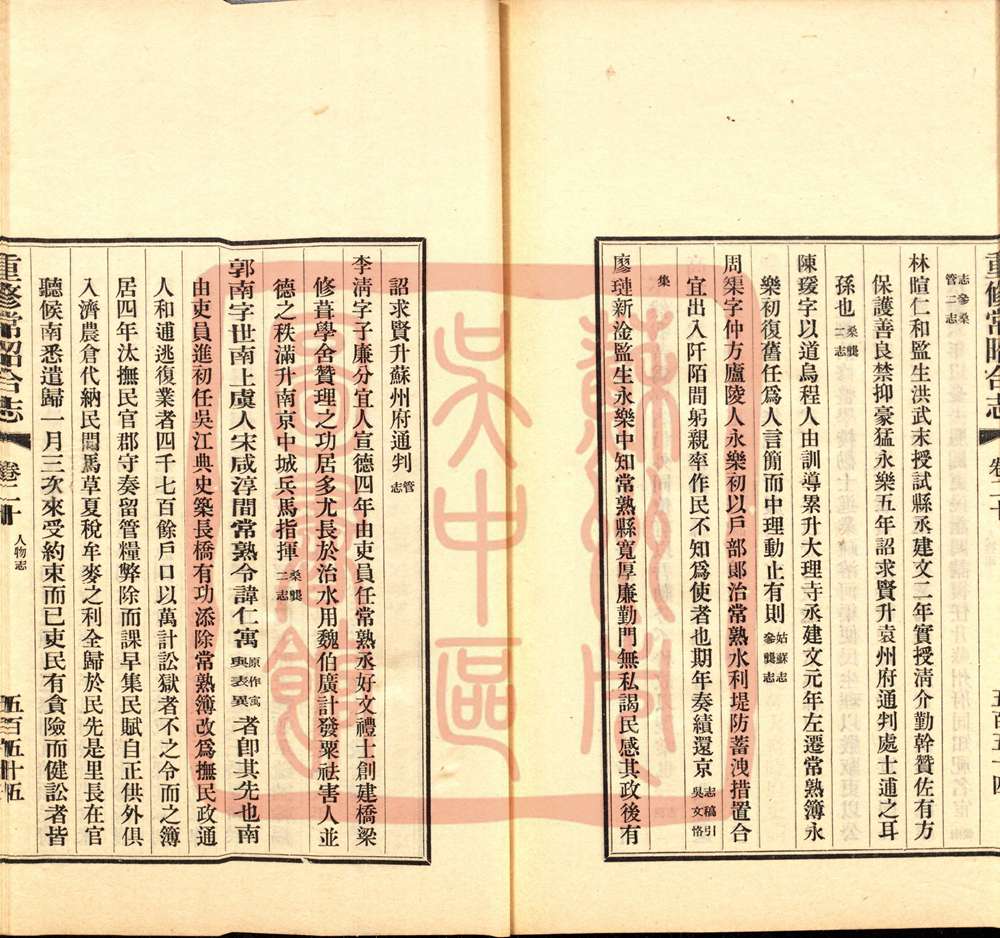 重修常昭合志
卷二十
五百五十四
志參桑
管二志
林暄仁和監生洪武末授試縣丞建文二年實授清介勤幹贊佐有方
保護善良禁抑豪猛永樂五年詔求賢升袁州府通判處士逋之耳
孫也桑龔二志
陳瑗字以道烏程人由訓導累升大理寺丞建文元年左遷常熟簿永
樂初復舊任爲人言簡而中理動止有則姑蘇志參龔志
周渠字仲方廬陵人永樂初以戶部郎治常熟水利堤防蓄洩措置合
宜出入阡陌間躬親率作民不知爲使者也期年奏績還京志稿引吳文恪
集
廖璉新淦監生永樂中知常熟縣寬厚廉勤門無私謁民感其政後有
詔求賢升蘇州府通判管志
李清字子廉分宜人宣德四年由吏員任常熟丞好文禮士創建橋梁
修葺學舍贊理之功居多尤長於治水用魏伯廣計發粟祛害人並
德之秩滿升南京中城兵馬指揮桑龔二志
郭南字世南上虞人宋咸淳間常熟令諱仁寓原作寓與表異者卽其先也南
由吏員進初任吳江典史築長橋有功添除常熟簿改爲撫民政通
人和逋逃復業者四千七百餘戶口以萬計訟獄者不之令而之簿
居四年汰撫民官郡守奏留管糧弊除而課早集民賦自正供外俱
入濟農倉代納民間馬草夏稅牟麥之利全歸於民先是里長在官
聽候南悉遣歸一月三次來受約束而已吏民有貪險而健訟者皆
重修常昭合志
卷二十
人物志
五百五十五
蘇州市
吳中區
圖書館